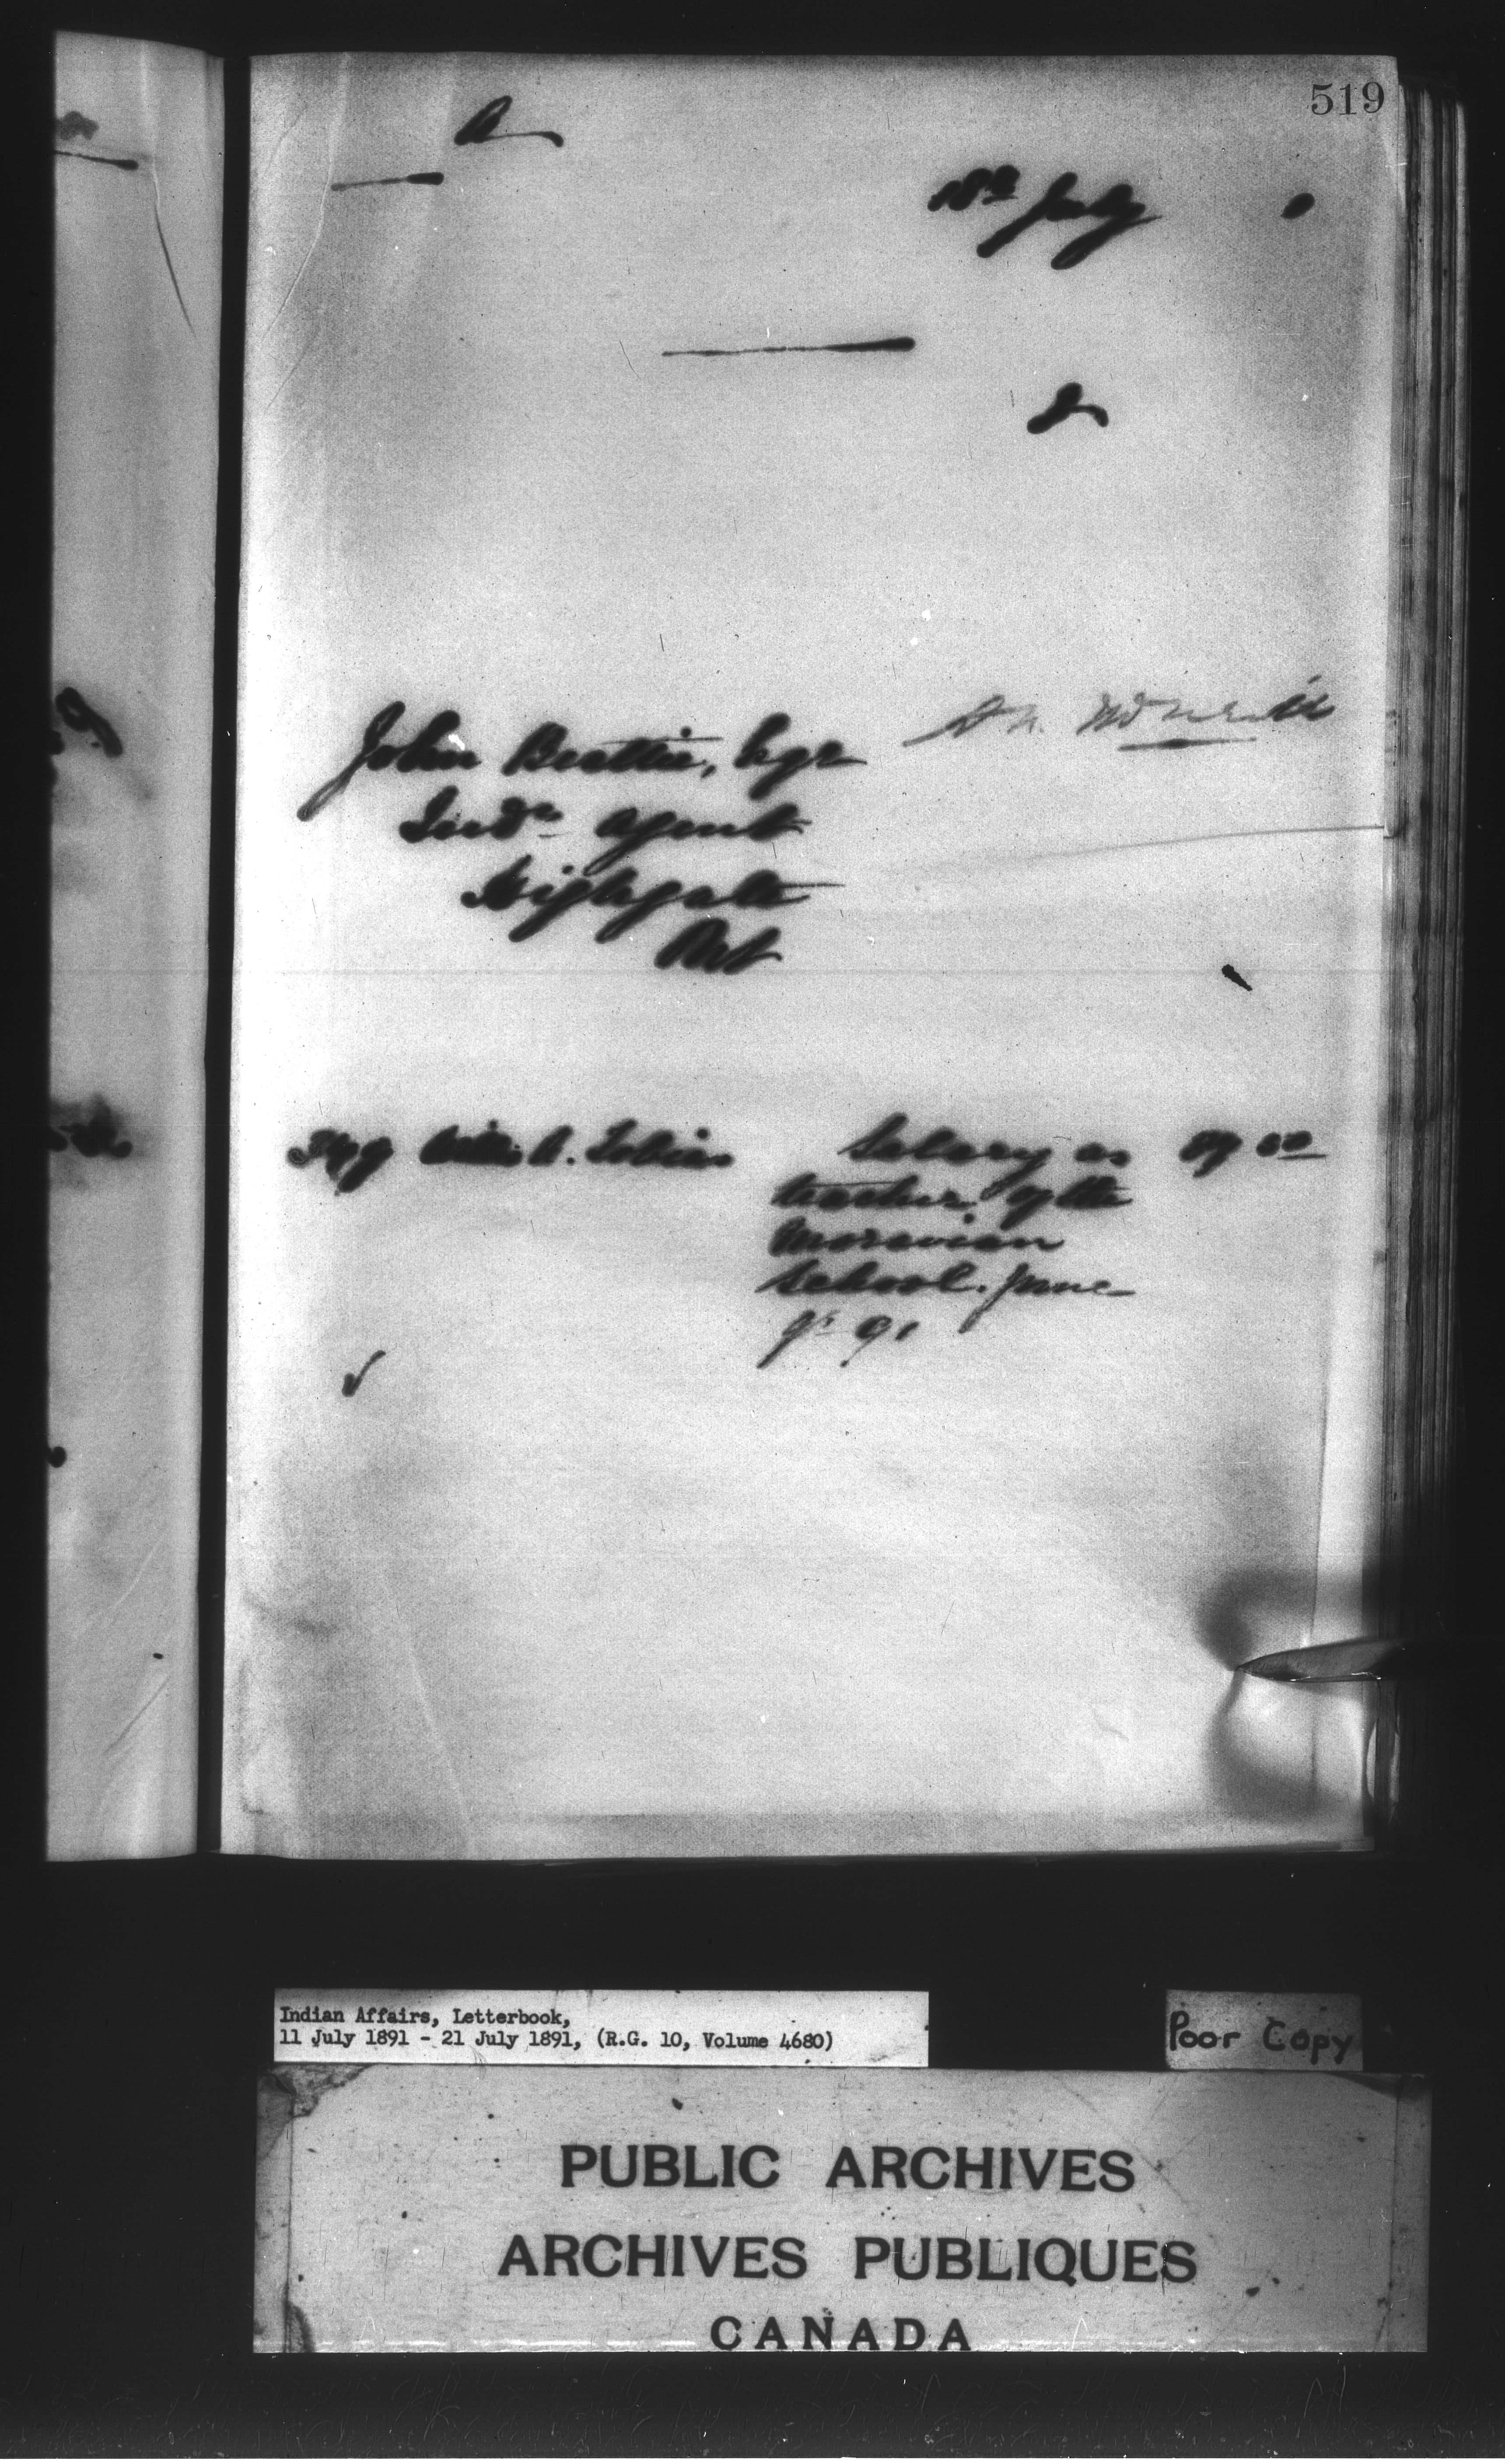 519
18th July
John Beattie, Esqr
Indn Agent
Highgate
Ont
A. Tobias Salary as
teacher of the
Moravian
School. June
qr 91
Indian Affairs, Letterbook,
11 July 1891 - 21 July 1891, (R.G. 10, Volume 4680)
Poor Copy
PUBLIC ARCHIVES
ARCHIVES PUBLIQUES
CANADA